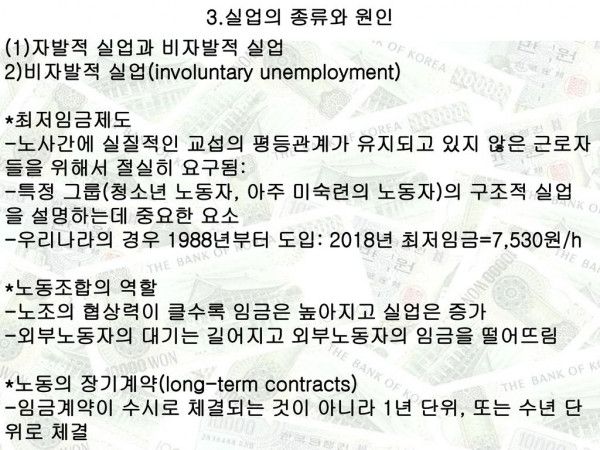 3.실업의 종류와 원인
(1)자발적 실업과 비자발적 실업
2)비자발적 실업(involuntary unemployment)
*최저임금제도
-노사간에 실질적인 교섭의 평등관계가 유지되고 있지 않은 근로자
들을 위해서 절실히 요구됨:
-특정 그룹(청소년 노동자, 아주 미숙련의 노동자)의 구조적 실업
을 설명하는데 중요한 요소
-우리나라의 경우 1988년부터 도입: 2018년 최저임금=7,530원/h
*노동조합의 역할
-노조의 협상력이 클수록 임금은 높아지고 실업은 증가
-외부노동자의 대기는 길어지고 외부노동자의 임금을 떨어뜨림
*노동의 장기계약(long-term contracts)
-임금계약이 수시로 체결되는 것이 아니라 1년 단위, 또는 수년 단
위로 체결